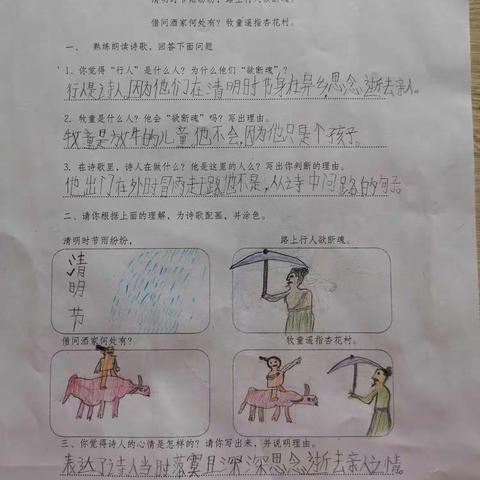 清明时节雨纷纷，路上行人欲断魂。
借问酒家何处有？牧童遥指杏花村。
一、 熟练朗读诗歌，回答下面问题
1. 你觉得“行人”是什么人？为什么他们“欲断魂”？
行人是诗人,因为他们在清明时节身在异乡,思念逝去亲人。
2. 牧童是什么人？他会“欲断魂”吗？写出理由。
牧童是放牛的儿童,他不会,因为他只是个孩子。
3. 在诗歌里，诗人在做什么？他是这里的人么？写出你判断的理由。
他出门在外时冒雨走路,他不是,从诗中问路的句子。
二、请你根据上面的理解，为诗歌配画，并涂色。
清明时节雨纷纷，
路上行人欲断魂。
清明节
借问酒家何处有？
牧童遥指杏花村。
三、你觉得诗人的心情是怎样的？请你写出来，并说明理由。
表达了诗人当时落寞且深深思念逝去亲人之情。